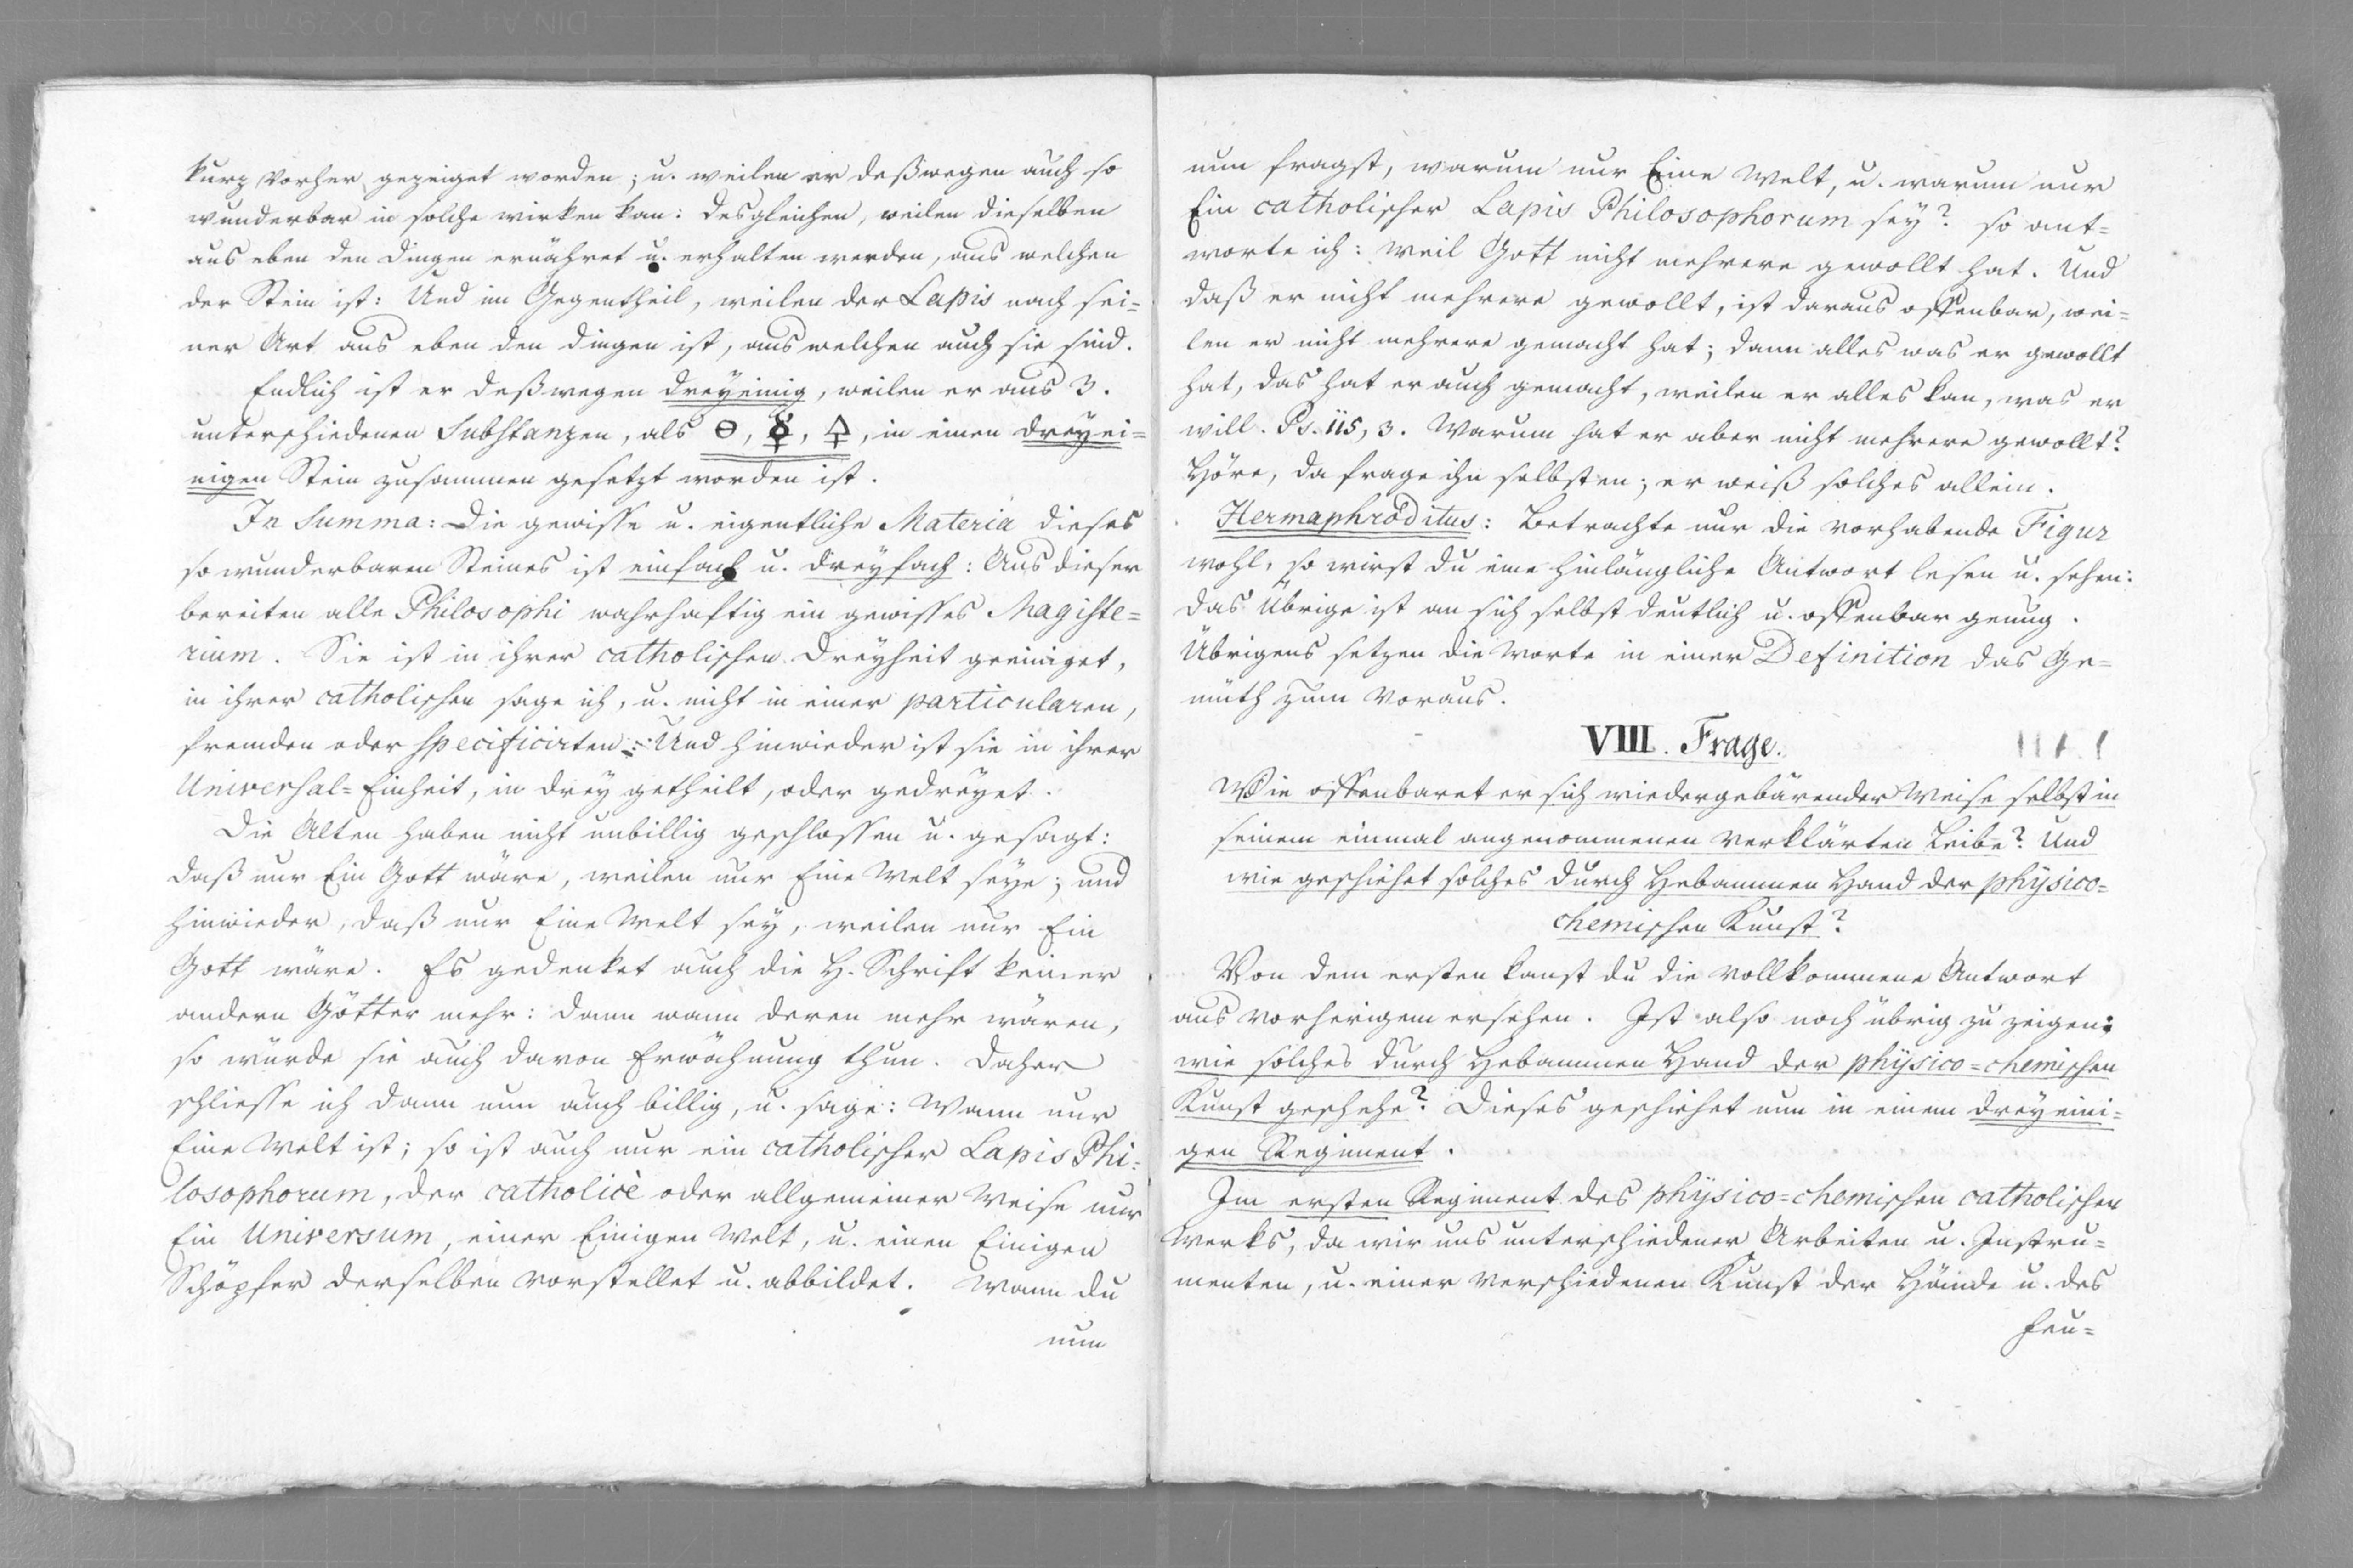 kurz vorher gezeiget worden; u. weilen er deßwegen auch so
wunderbar in solche wirken kan: desgleichen, weilen dieselben
aus eben den Dingen ernähret u. erhalten werden, aus welchen
der Stein ist: Und im Gegentheil, weilen der Lapis nach sei=
ner Art aus eben den Dingen ist, aus welchen auch sie sind.
Endlich ist er deßwegen dreyeinig, weilen er aus 3.
unterschiedenen Substanzen, als 🜔, ☿, 🜍, in einen dreyei=
nigen Stein zusammen gesetzt worden ist.
In Summa: Die gewisse u. eigentliche Materia dieses
so wunderbaren Steines ist einfach u. dreyfach: Aus dieser
bereiten alle Philosophi wahrhaftig ein gewisses Magiste=
rium. Sie ist in ihrer catholischen Dreyheit geeiniget,
in ihrer catholischen sage ich, u. nicht in einer particularen,
fremden oder specificirten: Und hinwieder ist sie in ihrer
Universal=Einheit, in drey getheilt, oder gedreyet.
Die Alten haben nicht unbillig geschlossen u. gesagt:
daß nur Ein Gott wäre, weilen nur Eine Welt seye; und
hinwieder, daß nur Eine Welt sey, weilen nur Ein
Gott wäre. Es gedenket auch die H. Schrift keiner
andern Götter mehr: dann wann deren mehr wären,
so würde sie auch davon Erwähnung thun. Daher
schliesse ich dann nun auch billig, u. sage: Wann nur
Eine Welt ist; so ist auch nur ein catholischer Lapis Phi=
losophorum, der catholicè oder allgemeiner Weise nur
Ein Universum, einer Einigen Welt, u. einen Einigen
Schöpfer derselben vorstellet u. abbildet. Wann du
nun
nun fragst, warum nur Eine Welt, u. warum nur
Ein catholischer Lapis Philosophorum sey? so ant=
worte ich: weil Gott nicht mehrere gewollt hat. Und
daß er nicht mehrere gewollt, ist daraus offenbar, wei=
len er nicht mehrere gemacht hat; dann alles was er gewollt
hat, das hat er auch gemacht, weilen er alles kan, was er
will. Ps. 115, 3. Warum hat er aber nicht mehrere gewollt?
Höre, da frage ihn selbsten; er weiß solches allein.
Hermaphroditus: Betrachte nur die vorhabende Figur
wohl, so wirst du eine hinlängliche Antwort lesen u. sehen:
das Übrige ist an sich selbst deutlich u. offenbar genug.
Übrigens setzen die Worte in einer Definition das Ge=
müth zum voraus.
VIII. Frage.
Wie offenbaret er sich wiedergebärender Weise selbst in
seinem einmal angenommenen verklärten Leibe? Und
wie geschiehet solches durch Hebammen Hand der physico=
chemischen Kunst?
Von dem ersten kanst du die vollkommene Antwort
aus vorherigem ersehen. Ist also noch übrig zu zeigen:
wie solches durch Hebammen Hand der physico=chemischen
Kunst geschehe? Dieses geschiehet nun in einem dreyeini=
gen Regiment.
Im ersten Regiment des physico=chemischen catholischen
Werks, da wir uns unterschiedener Arbeiten u. Instru=
menten, u. einer verschiedenen Kunst der Hände u. des
Feu=